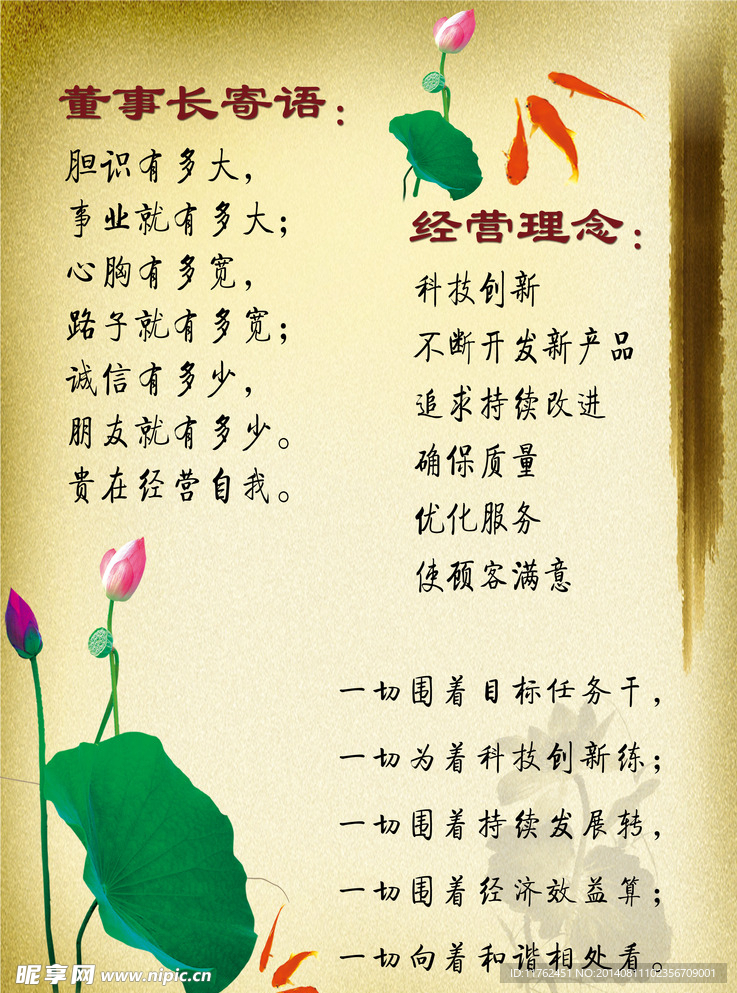 董事长寄语：
胆识有多大，
事业就有多大；
心胸有多宽，
路子就有多宽；
诚信有多少，
朋友就有多少。
贵在经营自我。
经营理念：
科技创新
不断开发新产品
追求持续改进
确保质量
优化服务
使顾客满意
一切围着目标任务干，
一切为着科技创新练；
一切围着持续发展转，
一切围着经济效益算；
一切向着和谐相处看。
昵享网 www.nipic.cn
ID:11762451 NO:20140811102356709001